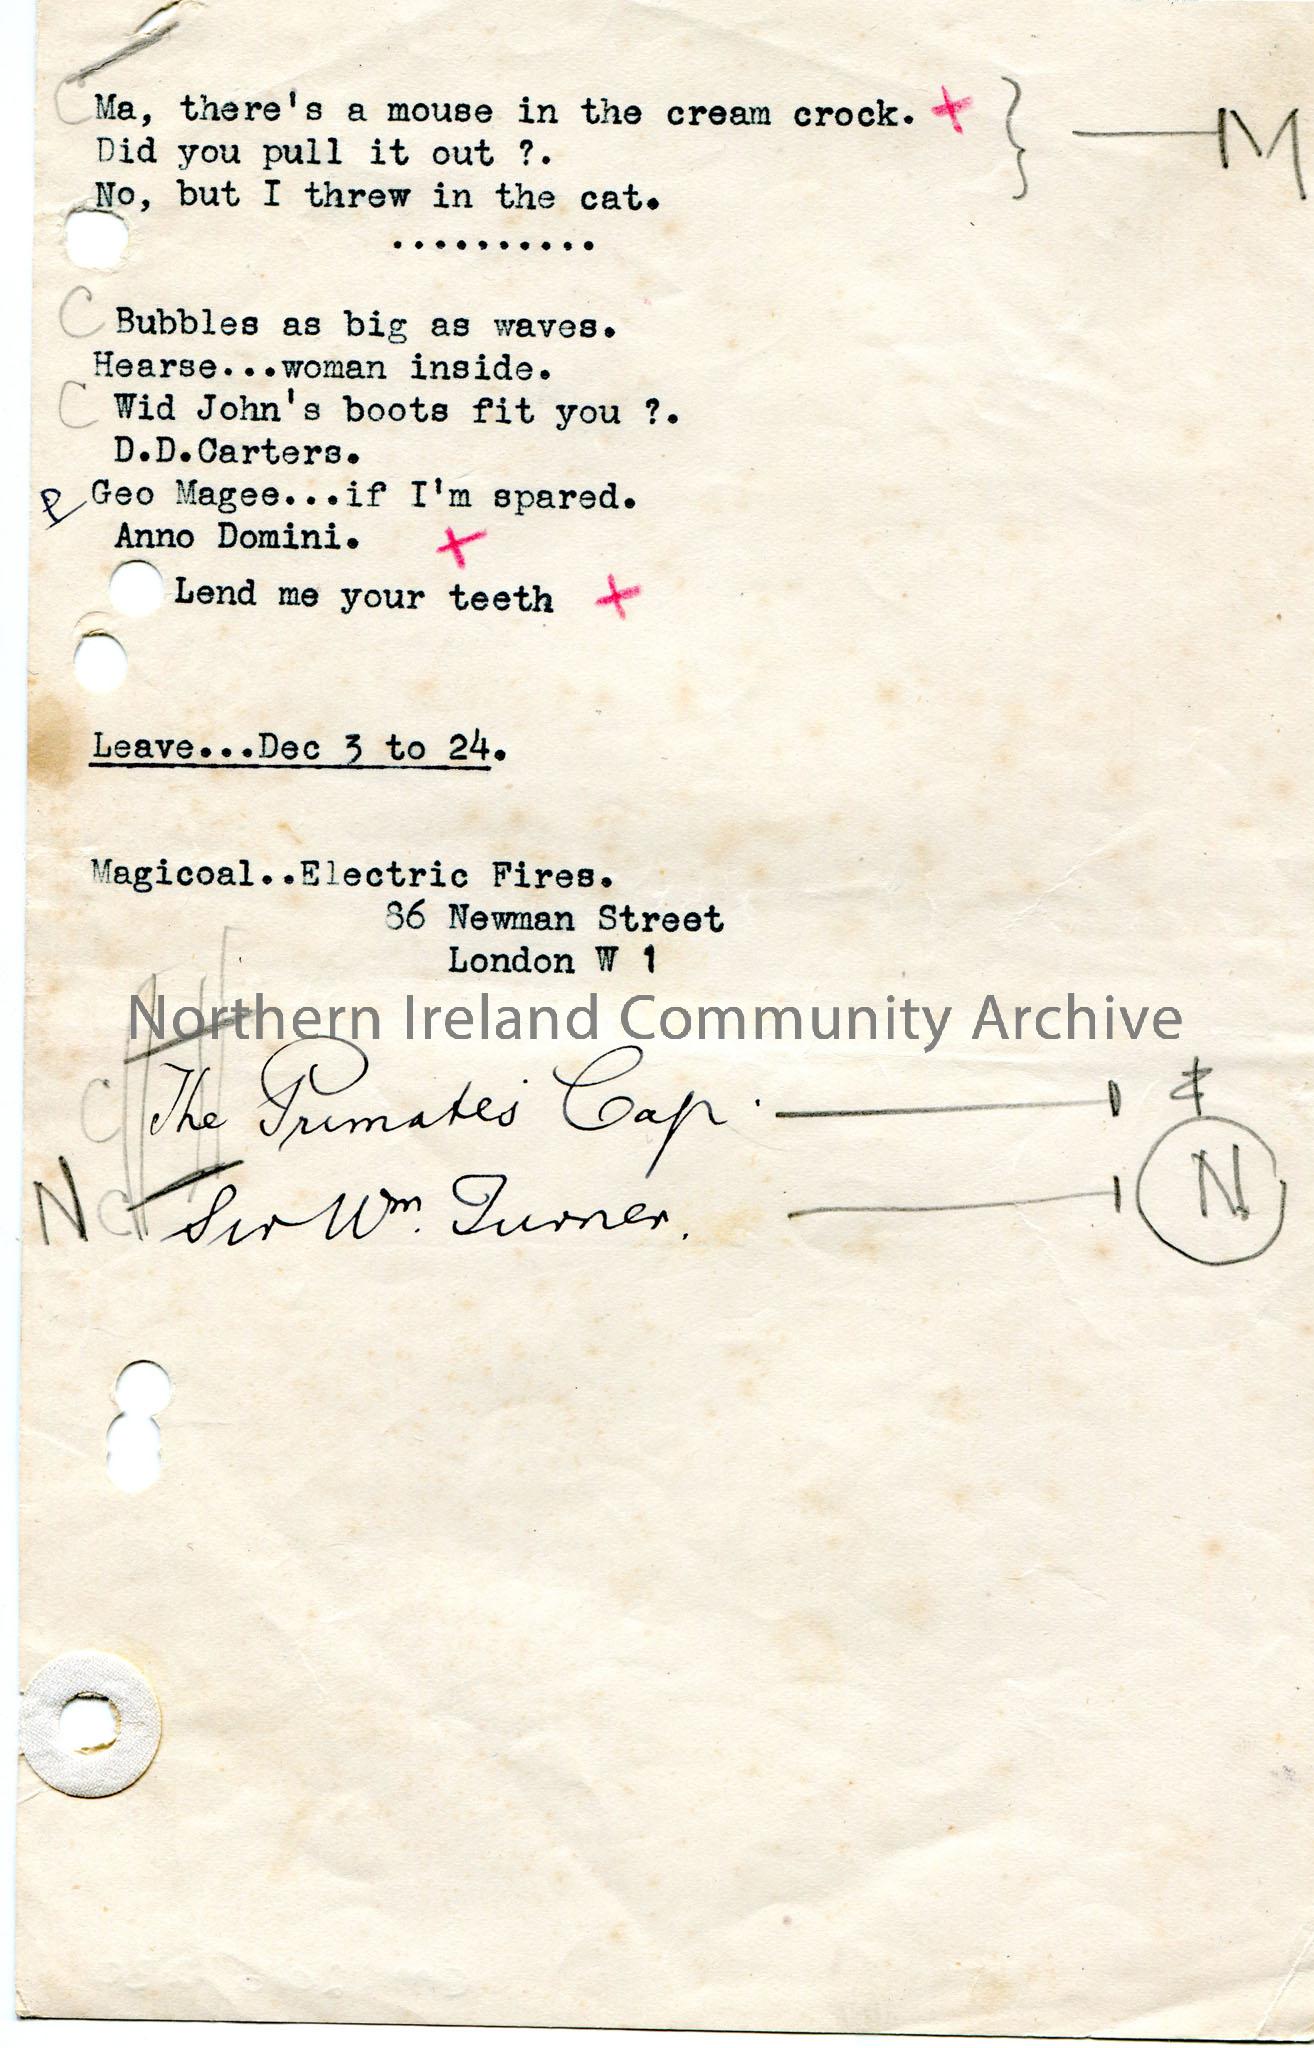 C Ma, there's a mouse in the cream crock. + } — M
Did you pull it out ?.
No, but I threw in the cat.
..........
C Bubbles as big as waves.
Hearse...woman inside.
C Wid John's boots fit you ?.
D.D.Carters.
P Geo Magee...if I'm spared.
Anno Domini. +
Lend me your teeth +
Leave...Dec 3 to 24.
Magicoal..Electric Fires.
86 Newman Street
London W 1
Northern Ireland Community Archive
C The Primate's Cap.
N C Sir Wm. Turner. N